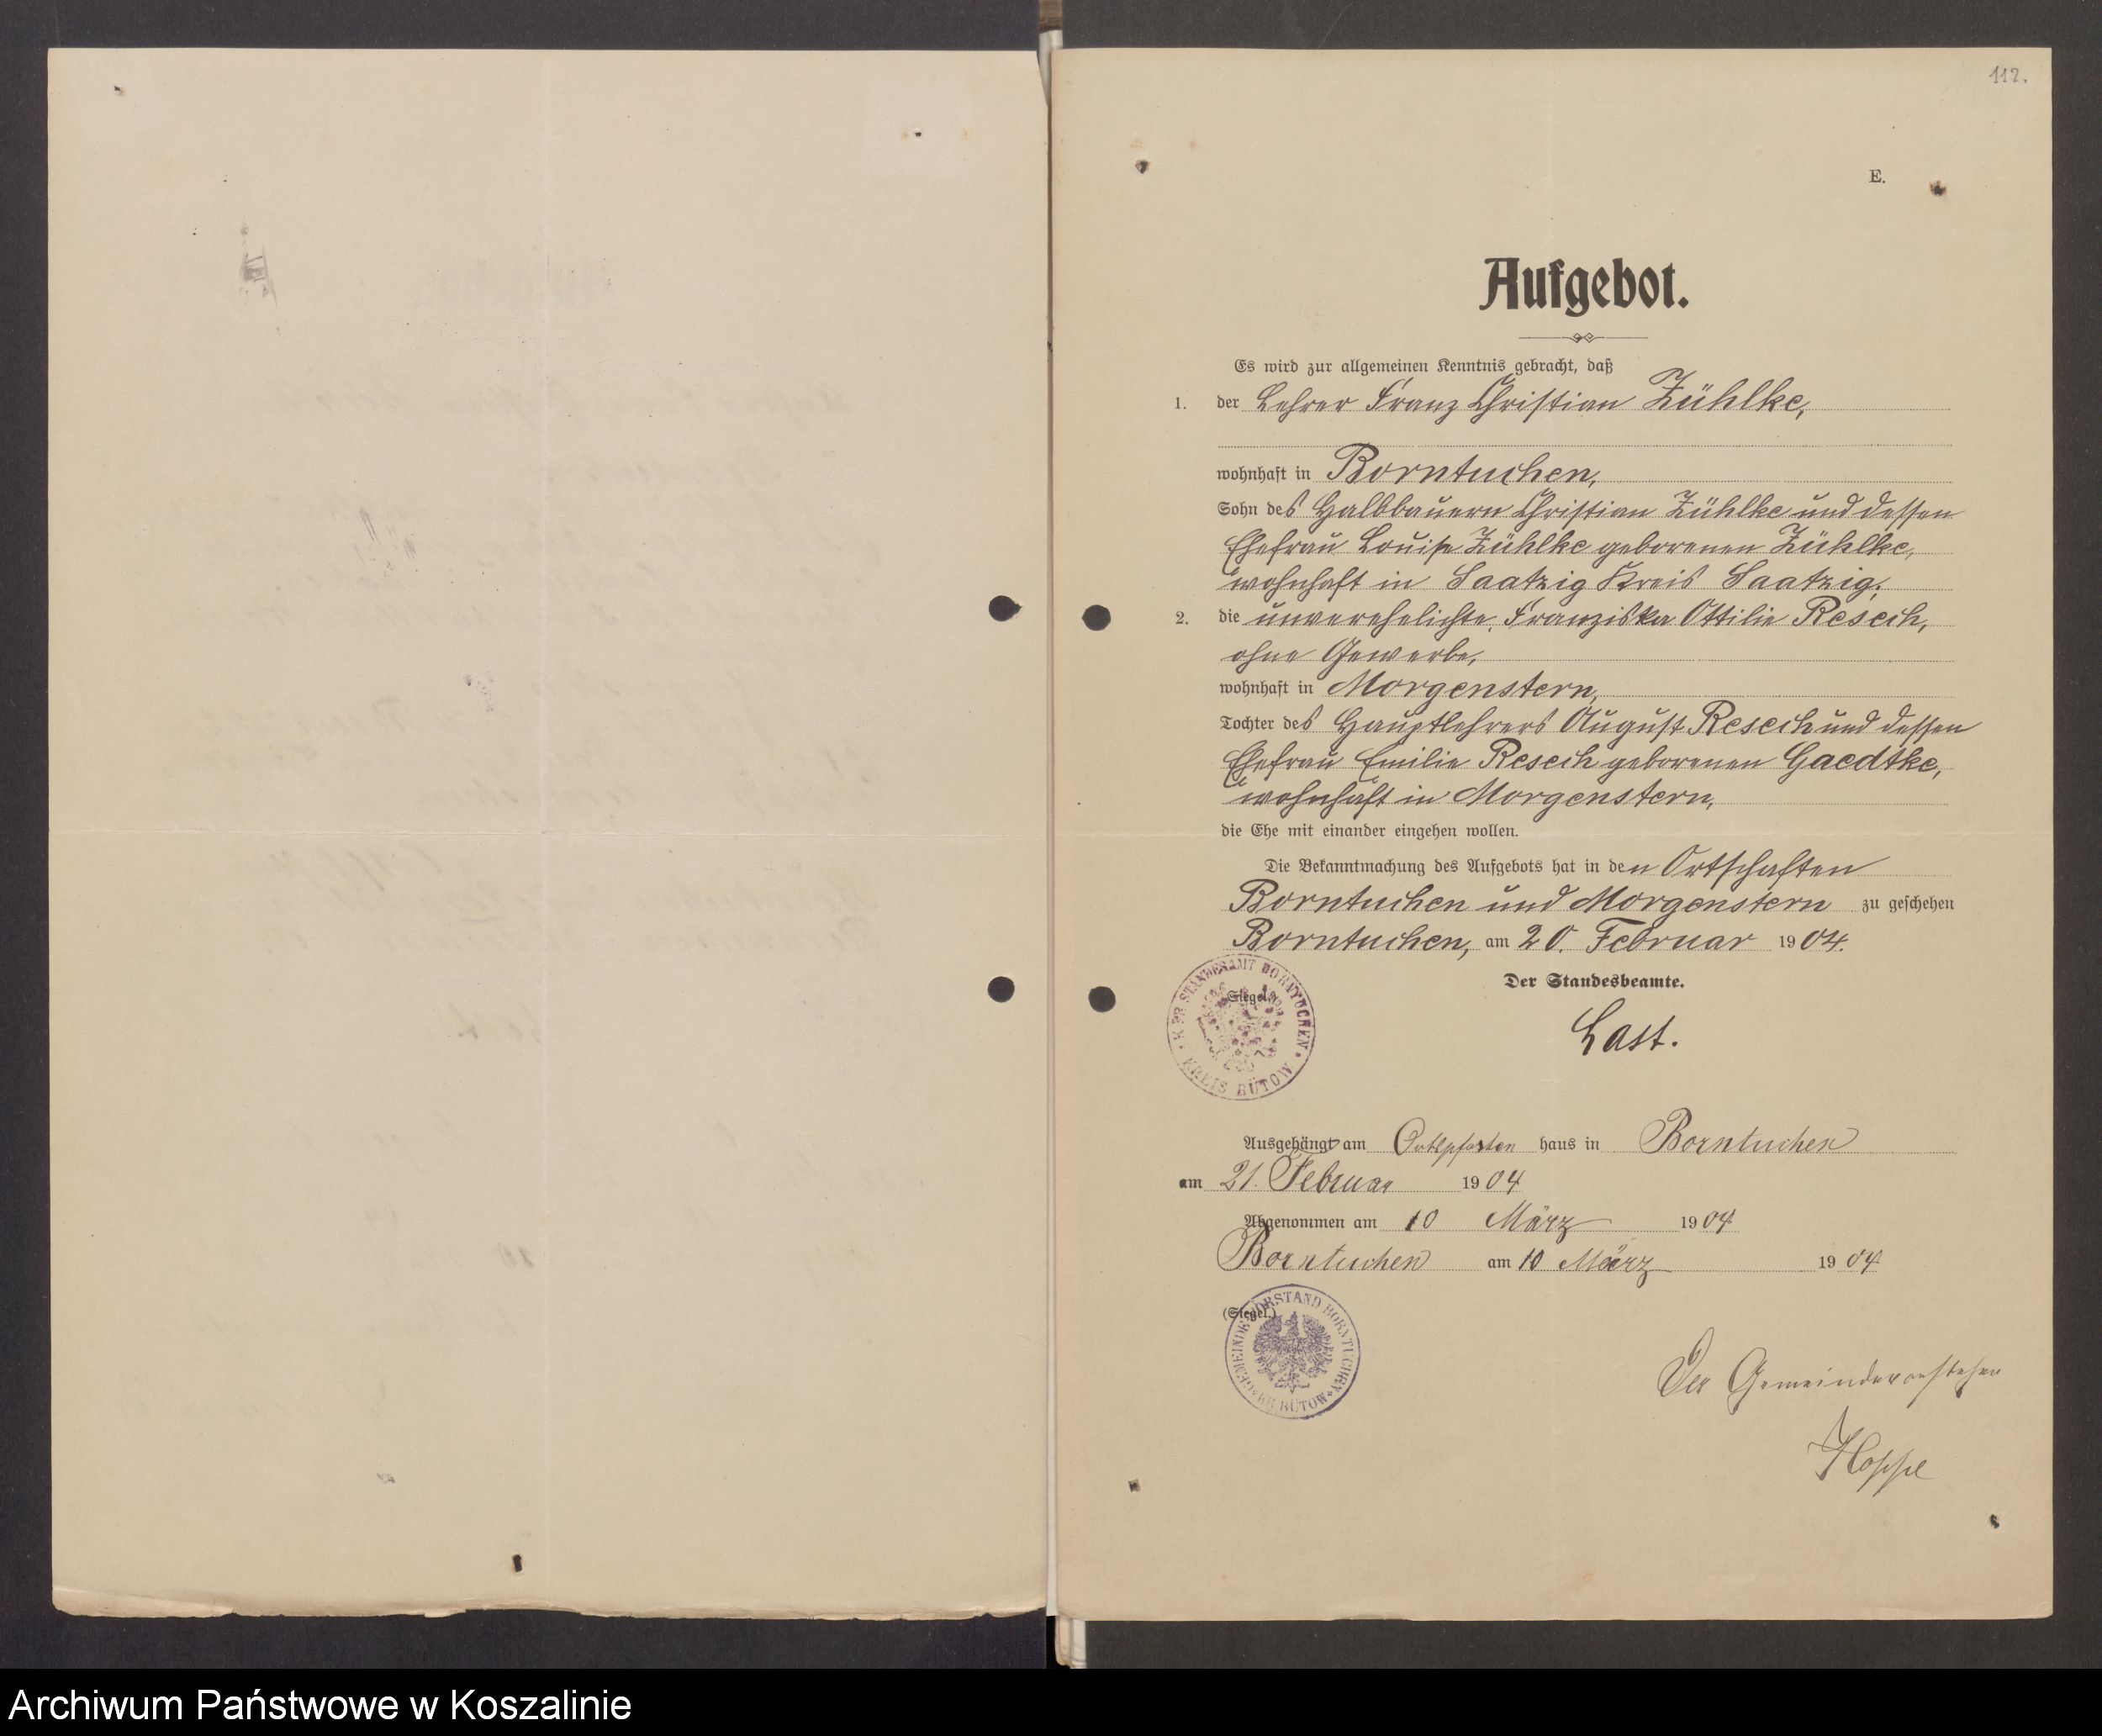 112.
E.
Aufgebot.
Es wird zur allgemeinen Kenntnis gebracht, daß
1. der Lehrer Franz Christian Zühlke,
wohnhaft in Borntuchen,
Sohn des Halbbauern Christian Zühlke und dessen
Ehefrau Louise Zühlke geborenen Zühlke,
wohnhaft in Saatzig Kreis Saatzig;
2. die unverehelichte Franziska Ottilie Resech,
ohne Gewerbe,
wohnhaft in Morgenstern,
Tochter des Hauptlehrers August Resech und dessen
Ehefrau Emilie Resech geborenen Gaedtke,
wohnhaft in Morgenstern,
die Ehe mit einander eingehen wollen.
Die Bekanntmachung des Aufgebots hat in den Ortschaften
Borntuchen und Morgenstern zu geschehen
Borntuchen, am 20. Februar 1904.
Der Standesbeamte.
Siegel.
K. PR. STANDESAMT BORNTUCHEN
KREIS BÜTOW
Last.
Ausgehängt am haus in Borntuchen
am 21. Februar 1904
Abgenommen am 10 März 1904
Borntuchen am 10 März 1904
(Siegel.)
GEMEINDE VORSTAND BORNTUCHEN
BÜTOW
Der Gemeindevorsteher
Hoppe
Archiwum Państwowe w Koszalinie